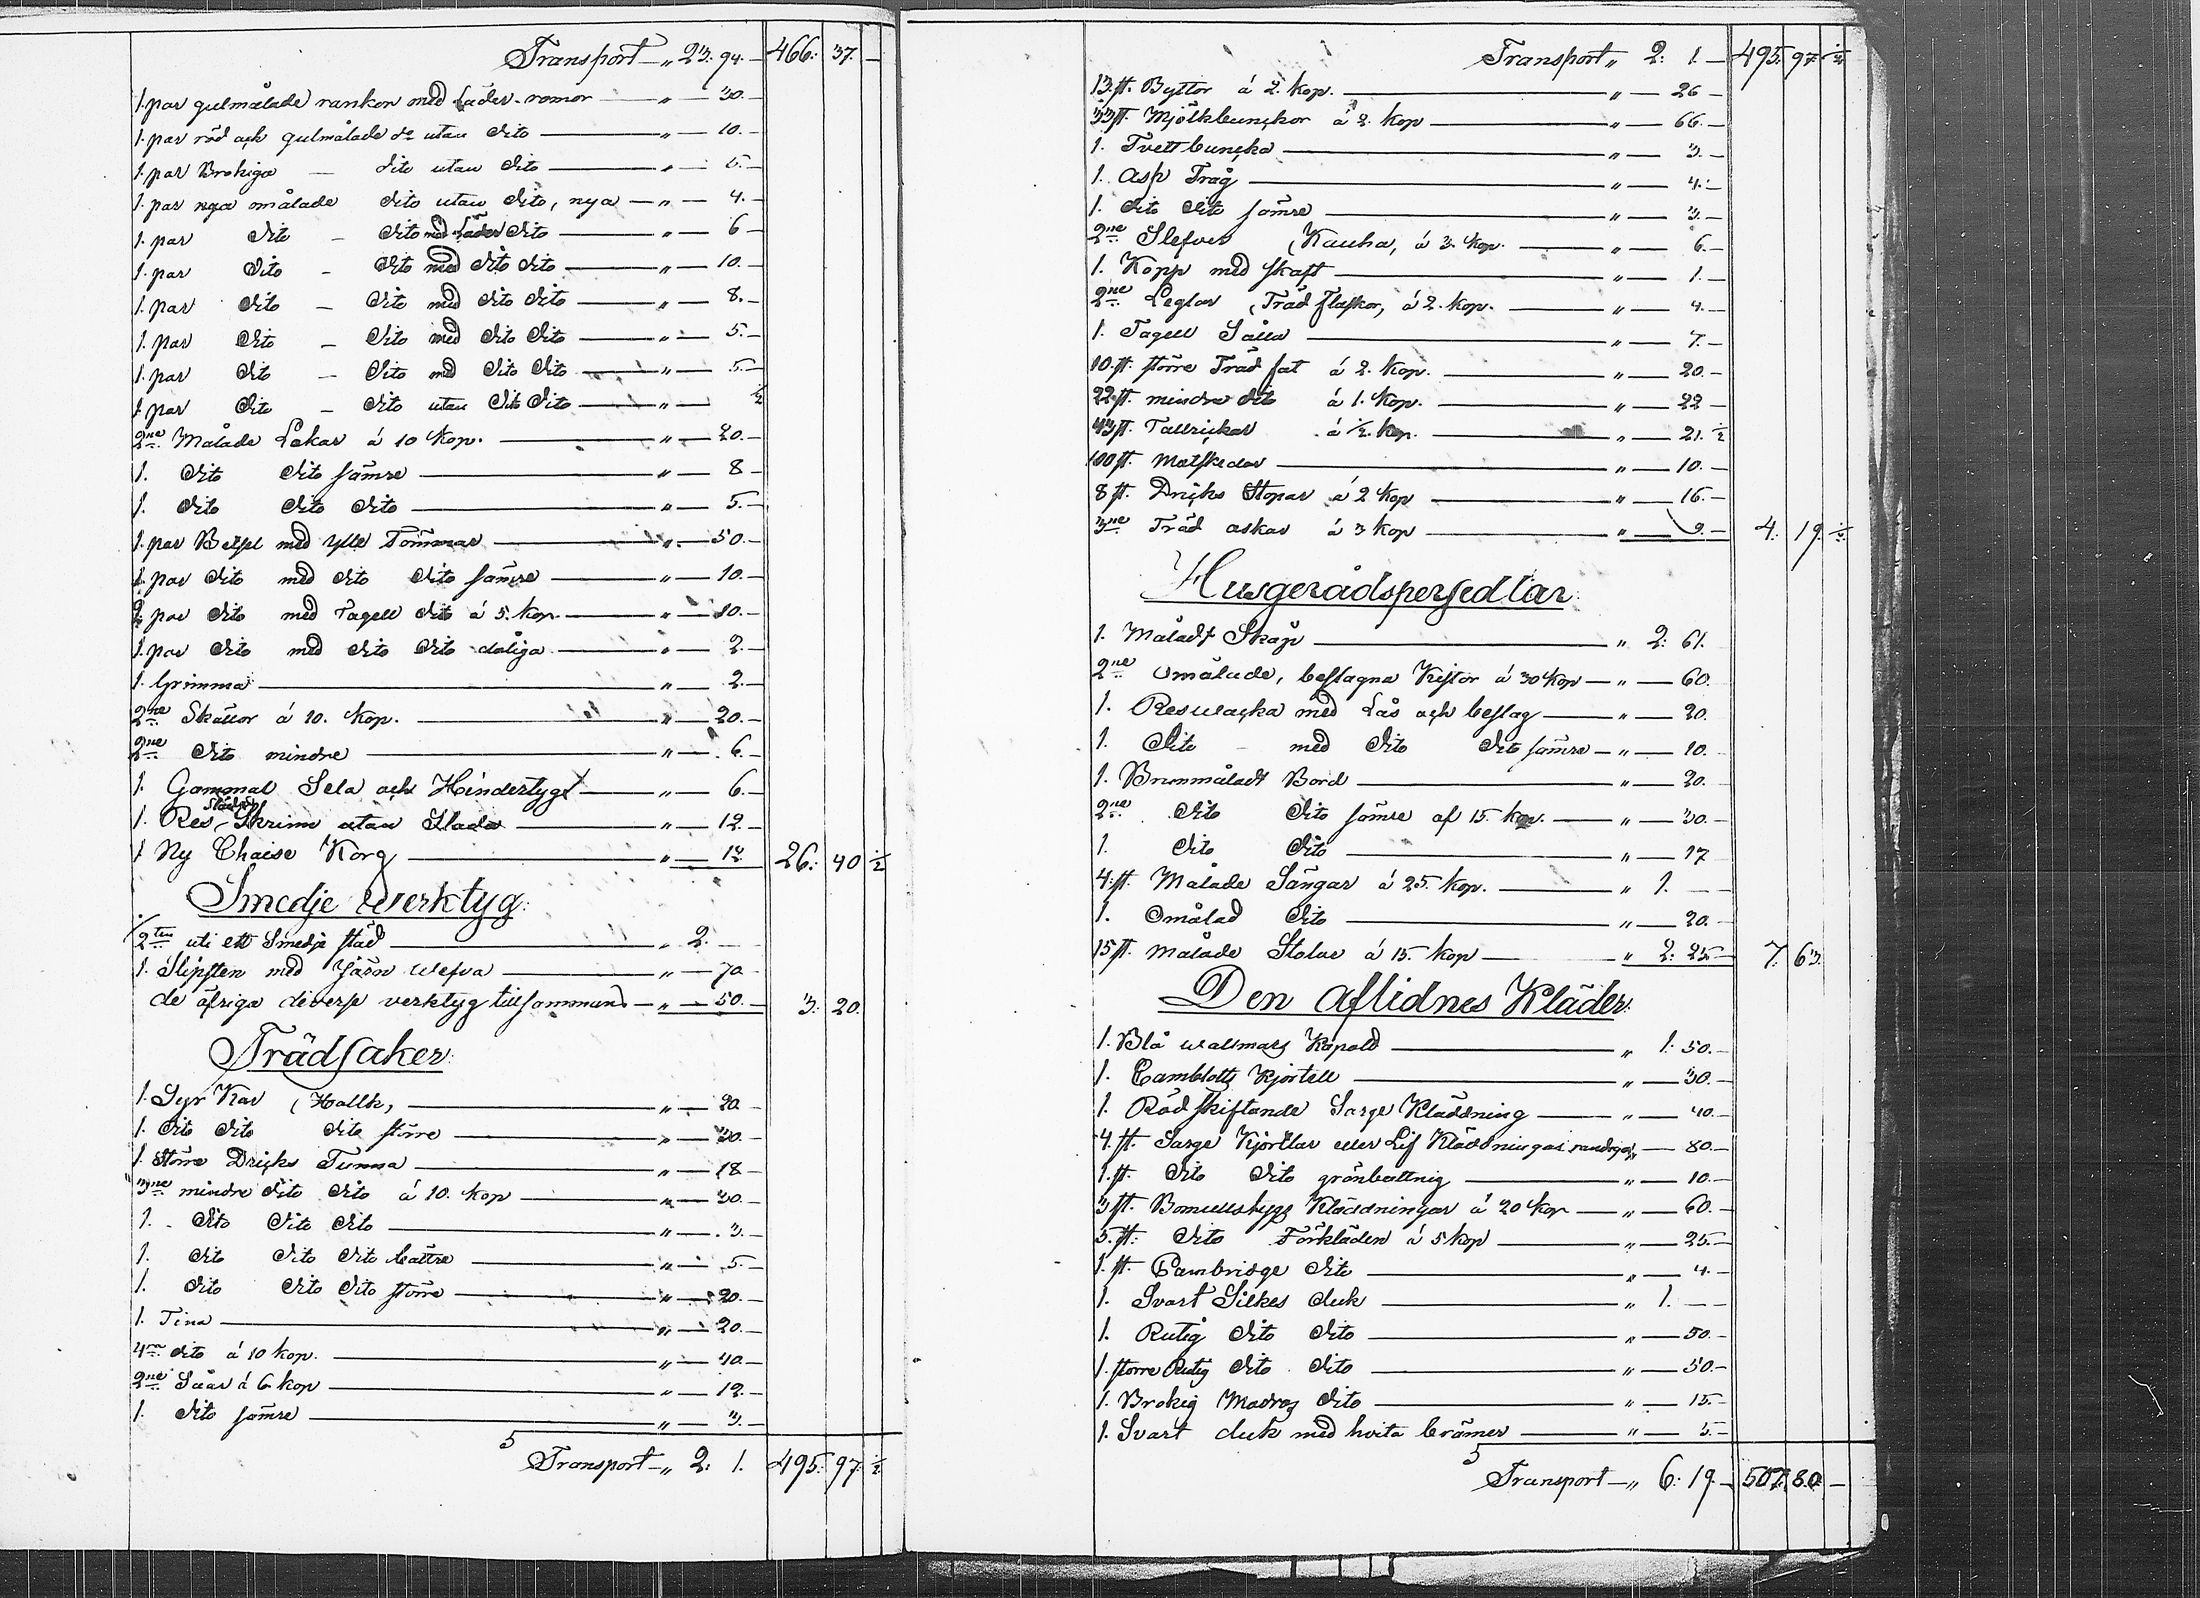 Transport — „ 23. 94. — 466: 37. —
1. par gulmålade rankor med Läder-romor — „ — 30. —
1. par röd och gulmålade do utan dito — „ — 10. —
1. par Brokiga — dito utan dito — „ — 5. —
1. par nya omålade dito utan dito, nya — „ — 4. —
1. par dito — dito med Läder dito — „ — 6 —
1. par dito — dito med dito dito — „ — 10. —
1. par dito — dito med dito dito — „ — 8. —
1. par dito — dito med dito dito — „ — 5. —
1. par dito — dito med dito dito — „ — 5 —
1. par dito — dito utan dito dito — „ — ½
2ne Målade Lokar á 10 Kop. — „ — 20. —
1. dito dito sämre — „ — 8 —
1. dito dito dito — „ — 5. —
1. par Betsel med ylle Tömmar — „ — 50. —
1. par dito med dito dito sämre — „ — 10. —
2 par dito med Tagell dito á 5. Kop. — „ — 10. —
1. par dito med dito dito dåliga — „ — 2. —
1. Grimma — „ — 2. —
2ne Skällor á 10. Kop. — „ — 20. —
2ne dito mindre — „ — 6. —
1. Gammal Sela och Hindertygt — „ — 6. —
1. Res-Skrinn utan Slade — „ — 12. —
1 Ny Chaise Korg — „ — 12. 26: 40 ½
Smedje werktyg:
½ten uti ett Smedje städ — „ 2. —
1. Slipsten med Järn wefva — „ — 70 —
de öfriga diverse verktyg tillsammans — „ — 50. — 3: 20.
Trädsaker:
1. Syr Kar (Hallk, — „ — 20. —
1. dito dito dito större — „ — 30. —
1. större Dricks Tunna — „ — 18 —
3ne mindre dito dito á 10. Kop — „ — 30. —
1. dito dito dito — „ — 3. —
1. dito dito dito bättre — „ — 5. —
1. dito dito dito större — „ — 20. —
1. Tina — „ — 20. —
4ra dito á 10 Kop. — „ — 40. —
2ne Såar á 6 kop — „ — 12. —
1. dito sämre — „ — 3. —
5
Transport — „ 2: 1. 495: 97. ½
Transport „ 2: 1. — 495. 97. ½
13. st. Byttor á 2. Kop. — „ — 26 —
33 st. Mjölkbunckor á 2. Kop — „ — 66. —
1. Tvettbuncka — „ — 3. —
1. Asp Tråg — „ — 4. —
1. dito dito sämre — „ — 3. —
2ne Slefver (Kauha, á 3. Kop. — „ — 6. —
1. Kopp med skaft — „ — 1. —
2ne Leglar (Träd flaskor, á 2. Kop. — „ — 4. —
1. Tagell Såll — „ — 7. —
10. st. större Träd fat á 2. Kop. — „ — 20. —
22 st. mindre dito á 1. Kop. — „ — 22 —
43 st. Tallrickar á ½. Kop. — „ — 21. ½
100 st. Matskedar — „ — 10. —
8 st. Dricks Stopar á 2 Kop — „ — 16. —
3ne Träd askar á 3 Kop — „ — 9. — 4: 19. ½
Husgerådspersedlar:
1. Måladt Skåp — „ 2: 61.
2ne Omålade, beslagna Kistor á 30 Kop — „ — 60.
1. Reswacka med Lås och beslag — „ — 20.
1. Dito — med dito dito sämre — „ — 10. —
1. Brunmåladt Bord — „ — 20.
2ne dito dito sämre af 15. Kop. — „ — 30. —
1. dito dito — „ — 17
4. st. Målade Sängar á 25. Kop. — „ 1. —
1. Omålad dito — „ — 20. —
15 st. målade Stolar á 15. Kop — „ 2: 25. — 7: 63.
Den Aflidnes Kläder:
1. Blå wallmars Kapald — „ 1: 50. —
1. Camblotts Kjortell — „ — 30. —
1. Röd skiftande Sarge Klädning — „ — 40. —
4. st. Sarge Kjortlar eller Lif Klädningar randiga „ — 80. —
1. st. dito dito grönbottnig — „ — 10. —
3 st. Bomullstygs Klädningar á 20 Kop — „ — 60. —
5. st. dito Förkläden á 5 Kop — „ — 25. —
1. st. Cambridge dito — „ — 4. —
1. Svart Silkes duk — „ 1. — —
1. Rutig dito dito — „ — 50. —
1. större Rutig dito dito — „ — 50. —
1. Brokig Madras dito — „ — 15. —
1. Svart duk med hvita brämer — „ — 5. —
5
Transport — „ 6: 19. — 507. 80. —